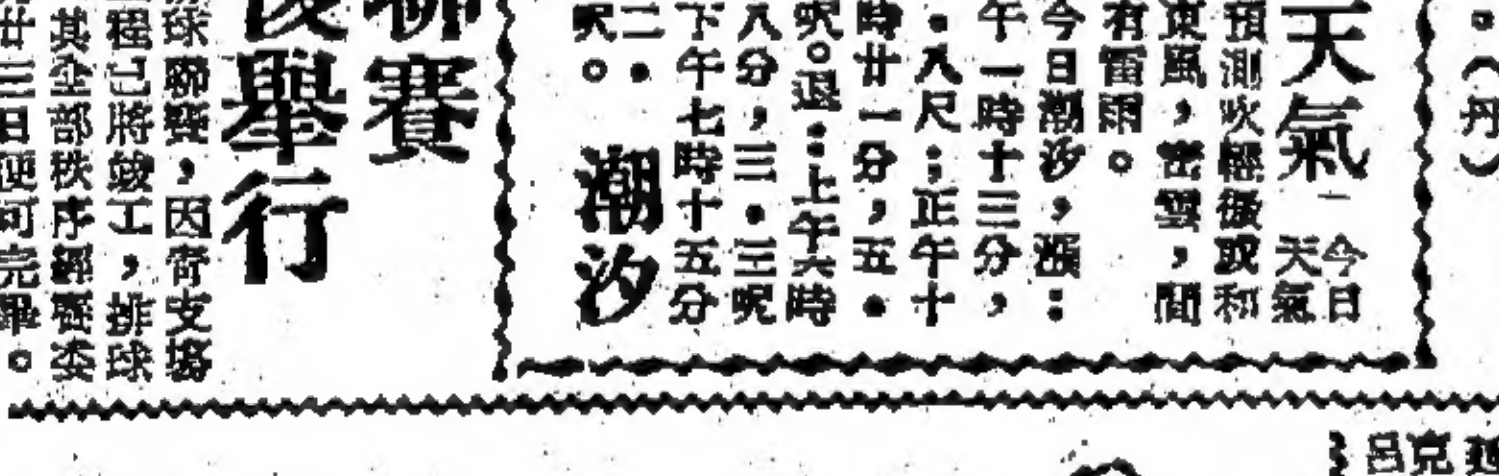 。（丹）
天氣
今日
天氣
預測吹輕微或和
東風，密雲，間
有雷雨。
今日潮汐，漲：
午一時十三分，
．八尺；正午十
時廿一分，五．
呎。退：上午六時
八分，三．三呎
下午七時十五分
二．
呎。
潮汐
聯賽
後舉行
球聯賽，因
支塲
程已將竣工，排球
其全部秩序經
委
廿三日便可完畢。
呂克